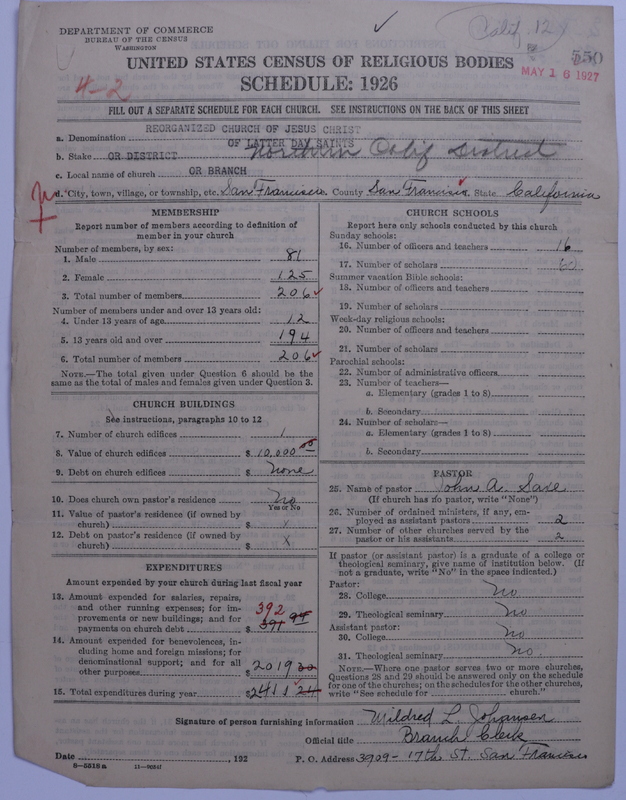 DEPARTMENT OF COMMERCE
BUREAU OF THE CENSUS
WASHINGTON
Calif. 129
550
MAY 16 1927
UNITED STATES CENSUS OF RELIGIOUS BODIES
SCHEDULE: 1926
4-2
FILL OUT A SEPARATE SCHEDULE FOR EACH CHURCH. SEE INSTRUCTIONS ON THE BACK OF THIS SHEET
a. Denomination REORGANIZED CHURCH OF JESUS CHRIST
OF LATTER DAY SAINTS
b. Stake OR DISTRICT Northern Calif District
c. Local name of church OR BRANCH
d. City, town, village, or township, etc. San Francisco. County San Francisco. State California
MEMBERSHIP
Report number of members according to definition of
member in your church
Number of members, by sex:
1. Male 81
2. Female 125
3. Total number of members 206
Number of members under and over 13 years old:
4. Under 13 years of age 12
5. 13 years old and over 194
6. Total number of members 206
NOTE.—The total given under Question 6 should be
the same as the total of males and females given under Question 3.
CHURCH BUILDINGS
See instructions, paragraphs 10 to 12
7. Number of church edifices 1
8. Value of church edifices $ 10,000 00
9. Debt on church edifices $ none
10. Does church own pastor's residence No
Yes or No
11. Value of pastor's residence (if owned by
church) $ x
12. Debt on pastor's residence (if owned by
church) $ x
EXPENDITURES
Amount expended by your church during last fiscal year
13. Amount expended for salaries, repairs,
and other running expenses; for im-
provements or new buildings; and for
payments on church debt $ 392 391 94
14. Amount expended for benevolences, in-
cluding home and foreign missions; for
denominational support; and for all
other purposes $ 2019 30
15. Total expenditures during year $ 2411 24
CHURCH SCHOOLS
Report here only schools conducted by this church
Sunday schools:
16. Number of officers and teachers 16
17. Number of scholars 60
Summer vacation Bible schools:
18. Number of officers and teachers
19. Number of scholars
Week-day religious schools:
20. Number of officers and teachers
21. Number of scholars
Parochial schools:
22. Number of administrative officers
23. Number of teachers—
a. Elementary (grades 1 to 8)
b. Secondary
24. Number of scholars—
a. Elementary (grades 1 to 8)
b. Secondary
PASTOR
25. Name of pastor John A. Saxe
(If church has no pastor, write "None")
26. Number of ordained ministers, if any, em-
ployed as assistant pastors 2
27. Number of other churches served by the
pastor or his assistants 2
If pastor (or assistant pastor) is a graduate of a college or
theological seminary, give name of institution below. (If
not a graduate, write "No" in the space indicated.)
Pastor:
28. College No
29. Theological seminary No
Assistant pastor:
30. College No
31. Theological seminary No.
NOTE.—Where one pastor serves two or more churches,
Questions 28 and 29 should be answered only on the schedule
for one of the churches; on the schedules for the other churches,
write "See schedule for church."
Signature of person furnishing information Mildred L. Johansen
Official title Branch Clerk
Date , 192
P. O. Address 3909- 17th St. San Francisco
8-5518a 11-9034f